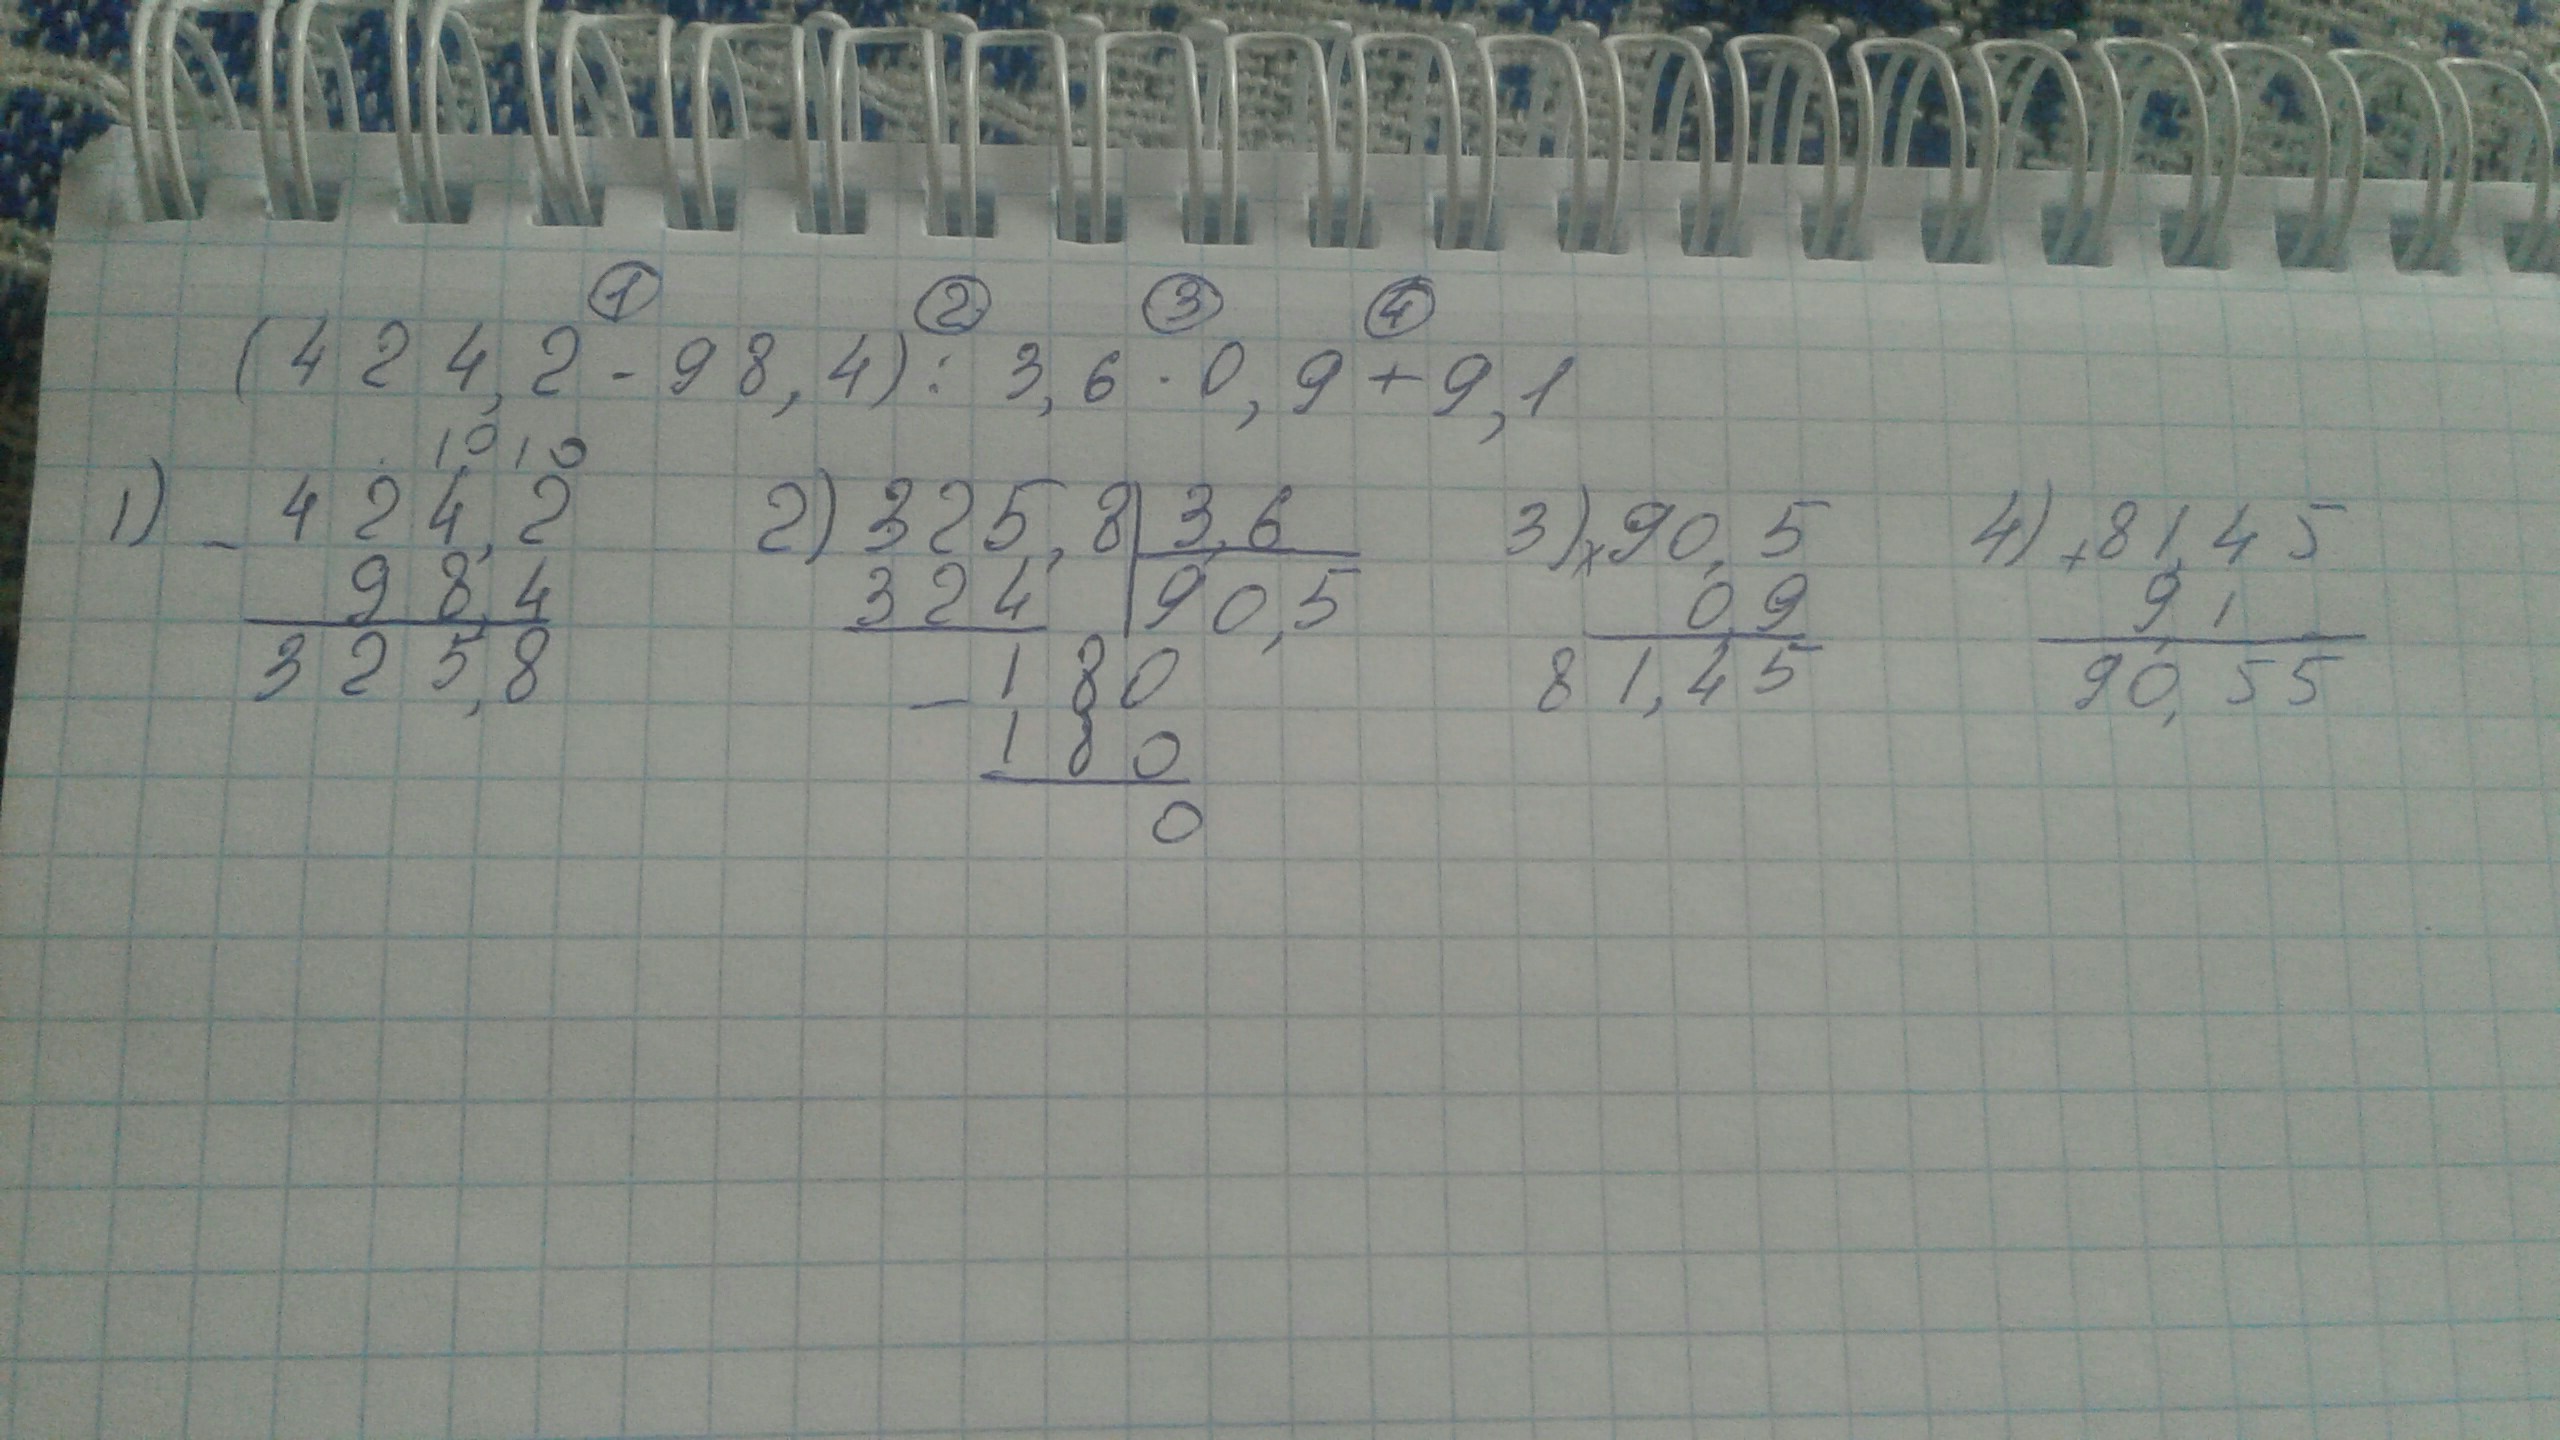 ① ② ③ ④
(424,2-98,4):3,6·0,9+9,1
10 10
1) - 424,2
98,4
325,8
2) 325,8 | 3,6
324 | 90,5
- 180
180
0
3) × 90,5
0,9
81,45
4) + 81,45
9,1
90,55